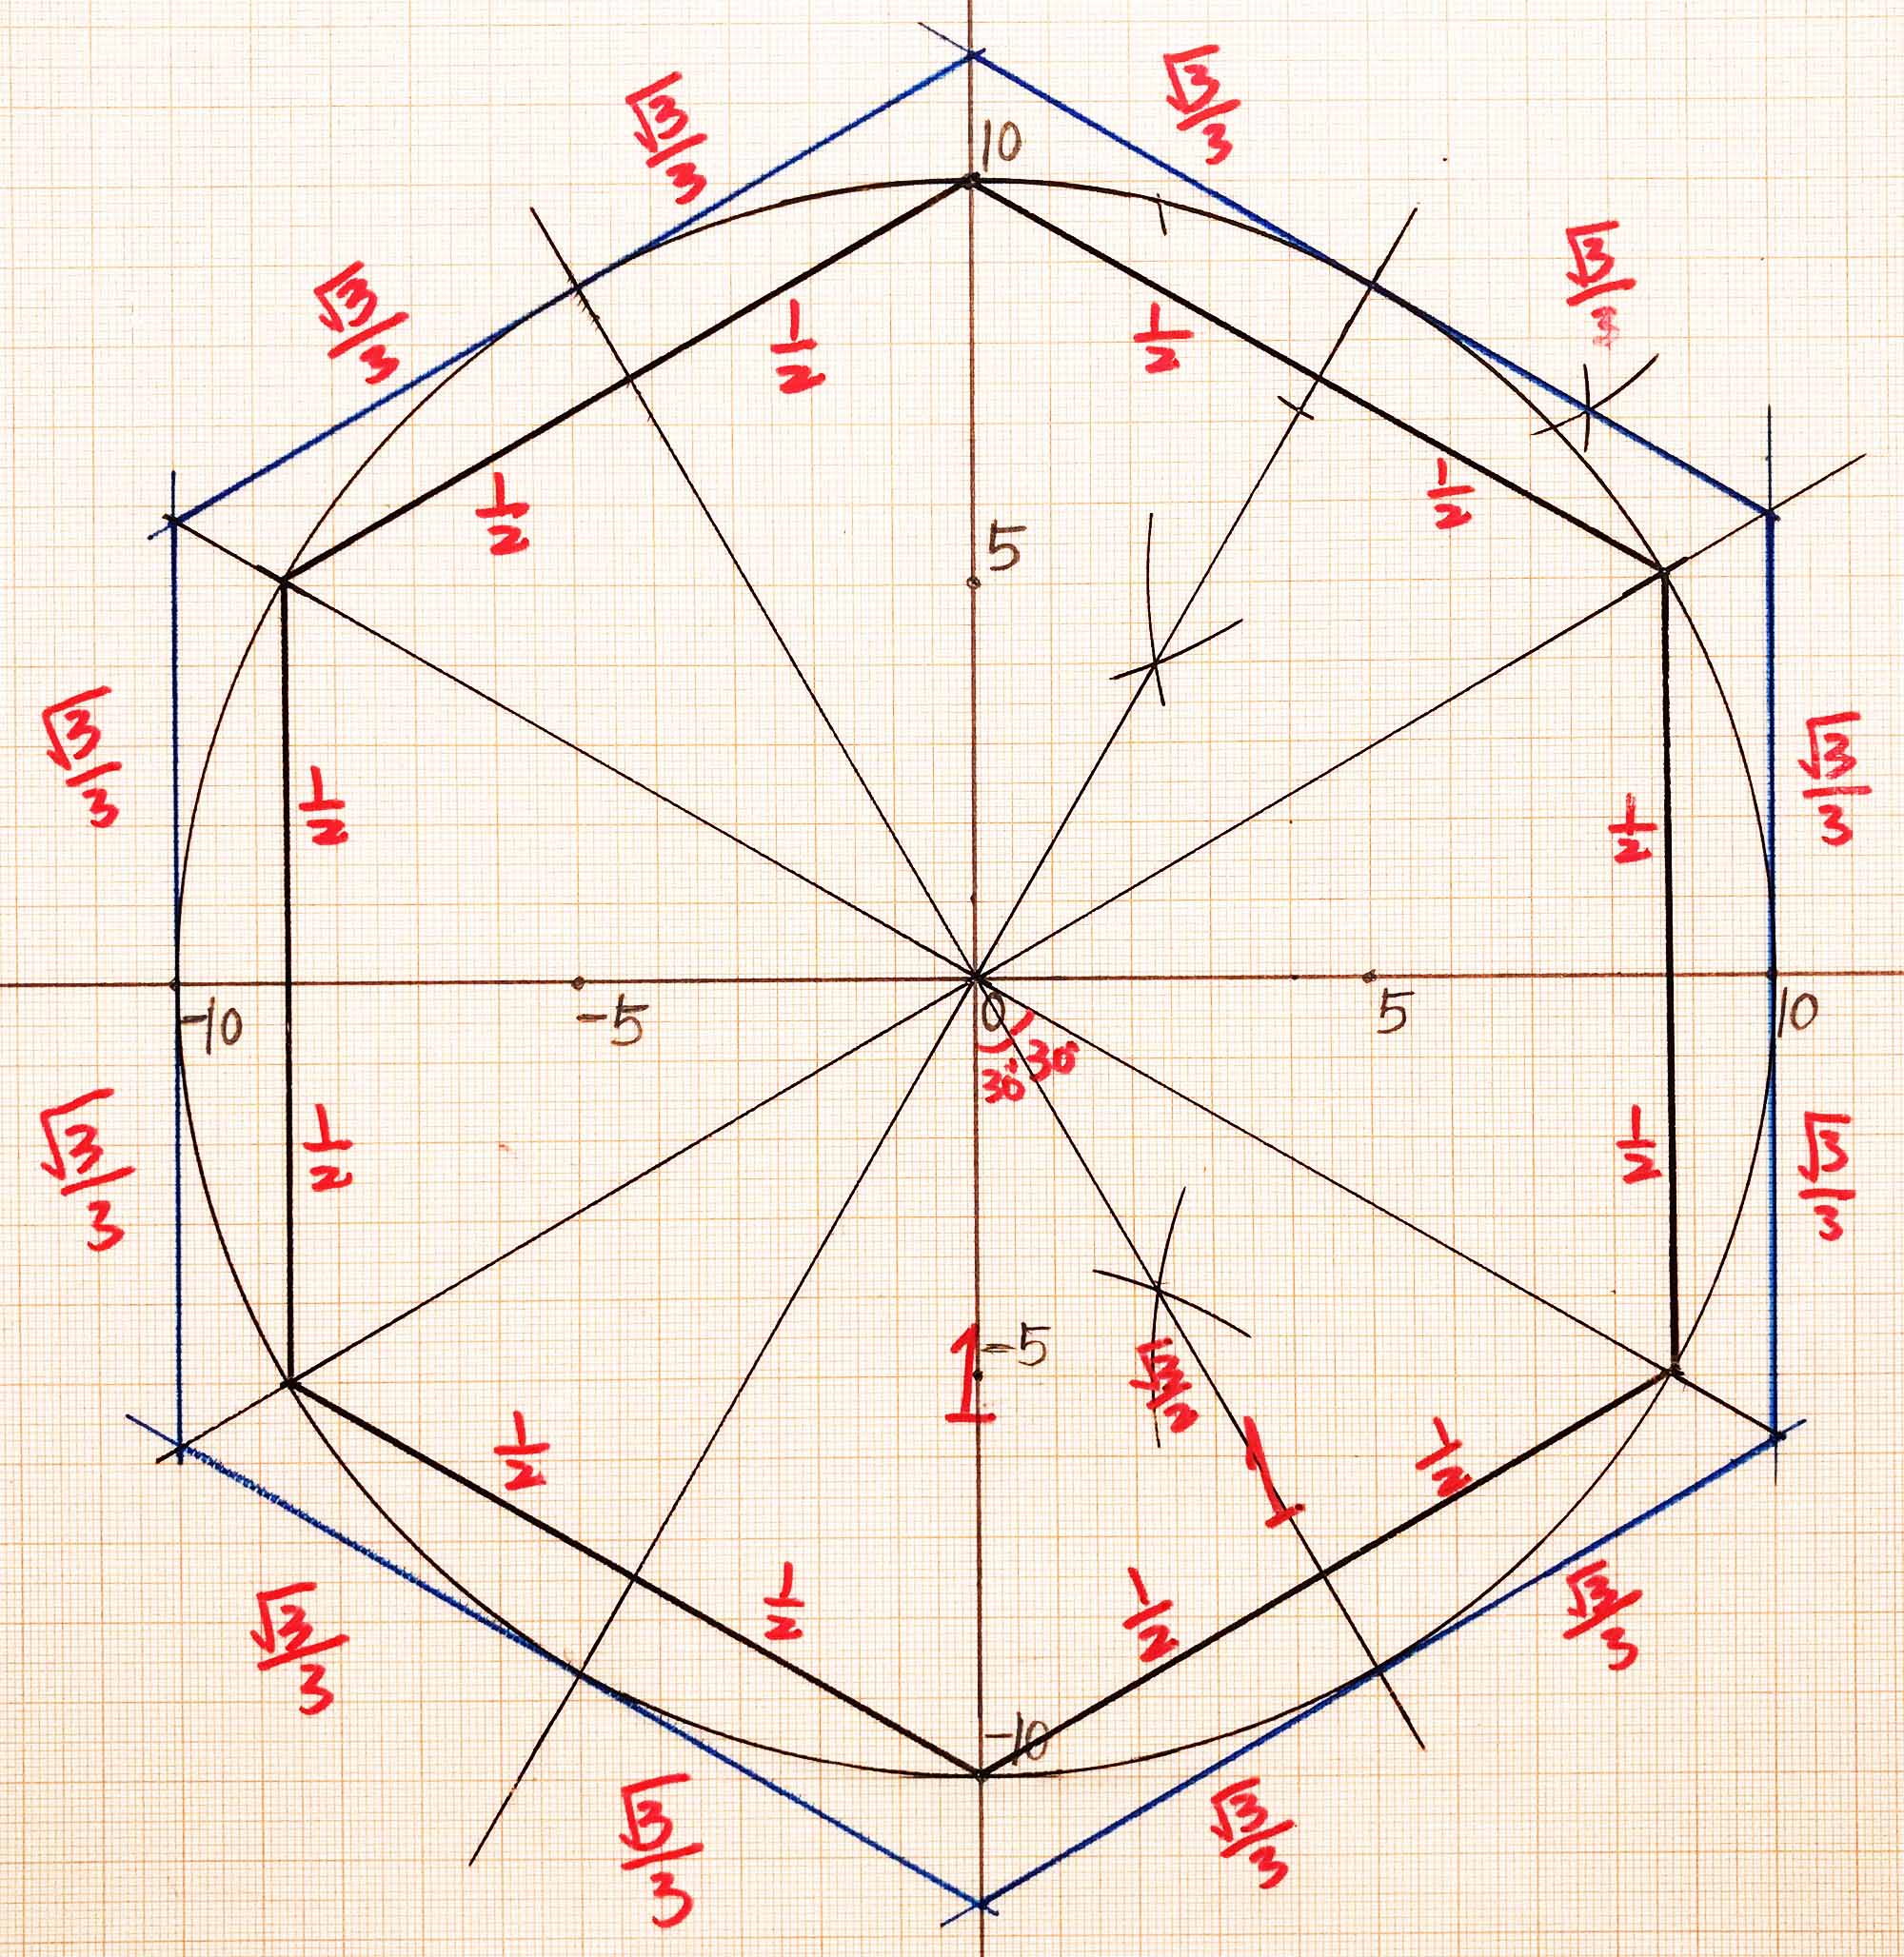 √3/3
√3/3
10
√3/3
√3/3
1/2
1/2
1/2
1/2
5
√3/3
√3/3
1/2
1/2
-10
-5
0
5
10
30°
30°
√3/3
√3/3
1/2
1/2
1
-5
√3/2
1
1/2
1/2
1/2
1/2
√3/3
√3/3
-10
√3/3
√3/3